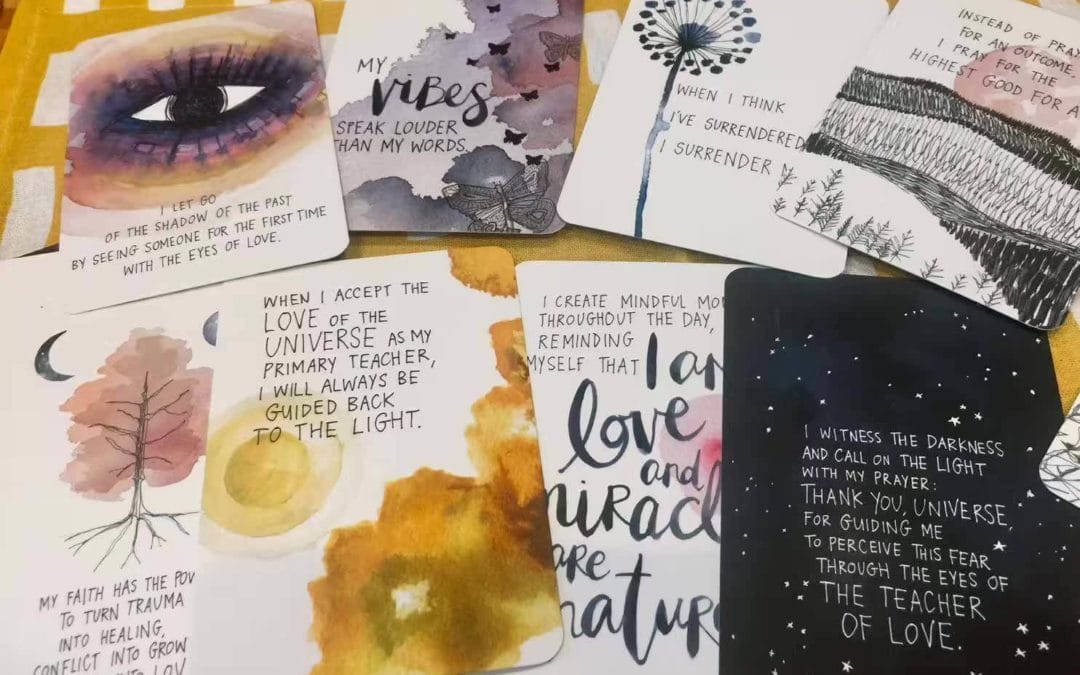 I LET GO
OF THE SHADOW OF THE PAST
BY SEEING SOMEONE FOR THE FIRST TIME
WITH THE EYES OF LOVE.
MY
VIBES
SPEAK LOUDER
THAN MY WORDS.
WHEN I THINK
I'VE SURRENDERED,
I SURRENDER
INSTEAD OF PRAY
FOR AN OUTCOME,
I PRAY FOR THE
HIGHEST GOOD FOR A
MY FAITH HAS THE POW
TO TURN TRAUMA
INTO HEALING,
CONFLICT INTO GROW
WHEN I ACCEPT THE
LOVE OF THE
UNIVERSE AS MY
PRIMARY TEACHER,
I WILL ALWAYS BE
GUIDED BACK
TO THE LIGHT.
I CREATE MINDFUL MO
THROUGHOUT THE DAY,
REMINDING
MYSELF THAT I am
love
and
miracl
are
natur
I WITNESS THE DARKNESS
AND CALL ON THE LIGHT
WITH MY PRAYER:
THANK YOU, UNIVERSE,
FOR GUIDING ME
TO PERCEIVE THIS FEAR
THROUGH THE EYES OF
THE TEACHER
OF LOVE.